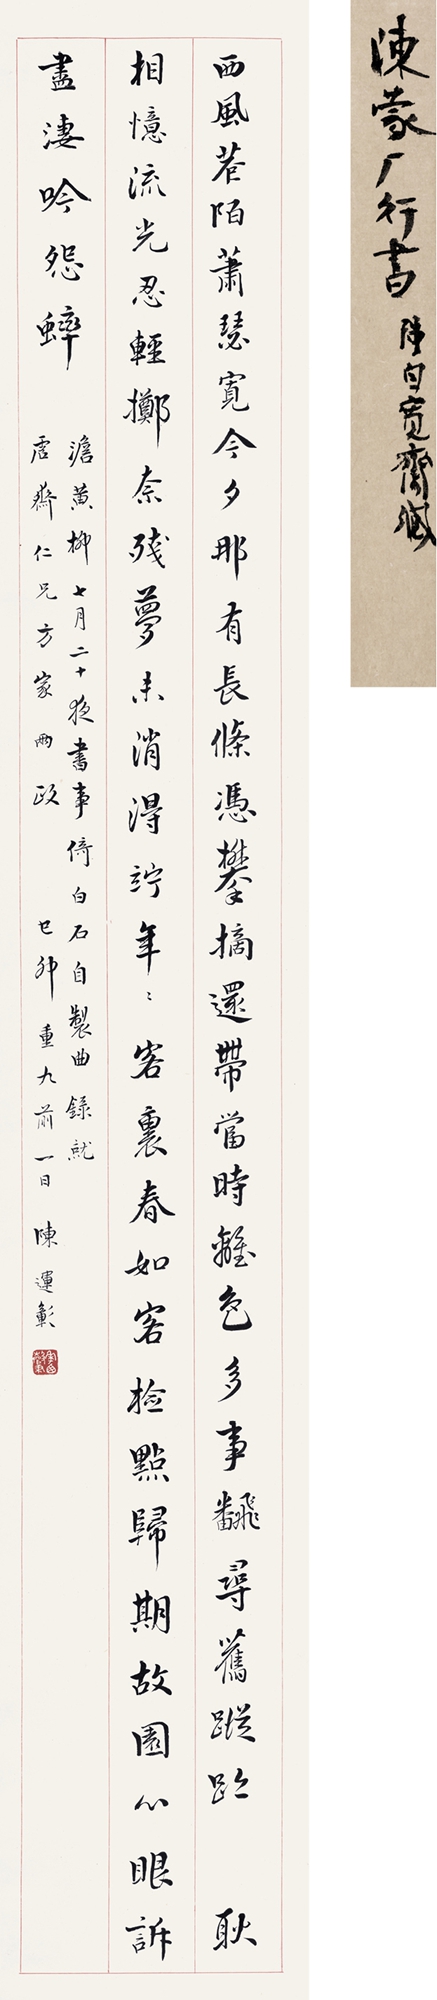 陳蒙厂行書 陳白寬齋藏
西風巷陌蕭瑟寬今夕那有長條憑攀摘還帶當時離色多事翻尋舊蹤跡 耿
相憶流光忍輕擲奈殘夢未消得竚年〻客裏春如客檢點歸期故園心眼訴
盡淒吟怨蟀
澹黃柳七月二十夜書事倚白石自製曲錄就
仁兄方家兩政 己卯重九前一日 陳運彰